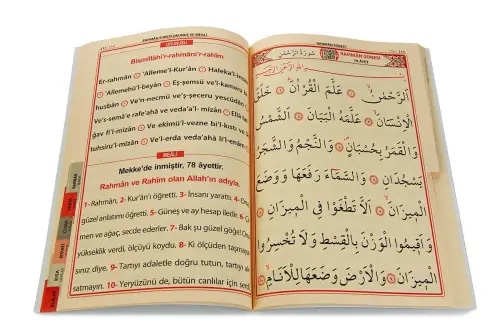 RAHMÂN SÛRESİ OKUNUŞ VE MEÂLİ
OKUNUŞU
Bismillâhi'r-rahmâni'r-rahîm
Er-rahmân ① 'Alleme'l-Kur'ân ② Haleka'l-
'Allemehü'l-bayân ④ Eş-şemsü ve'l-kameru
husbân ⑤ Ve'n-necmü ve'ş-şeceru yescüdân
Ve's-semâ'e rafe'ahâ ve veda'al- mîzân
ğav fi'l-mîzân ⑧ Ve ekîmü'l-vezne bi'l-kıstı
tuhsiru'l-mîzân ⑨ Ve'l-erda veda'ahâ li'l-enâm
MEÂLİ
Mekke'de inmiştir, 78 âyettir.
Rahmân ve Rahîm olan Allah'ın adıyla.
1- Rahmân, 2- Kur'ân'ı öğretti. 3- İnsanı yarattı. 4-
güzel anlatımı öğretti. 5- Güneş ve ay hesap iledir. 6-
men ve ağaç, secde ederler. 7- Bak şu güzel göğe!
yükseklik verdi, ölçüyü koydu. 8- Ki ölçüden taşma-
sınız diye. 9- Tartıyı adaletle doğru tutun, tartıyı
satmayın. 10- Yeryüzünü de, bütün canlılar için
RAHMÂN SÛRESİ
سُورَةُ الرَّحْمٰنِ
RAHMÂN SÛRESİ
78 ÂYET
اَلرَّحْمٰنُ ۙ ١ عَلَّمَ الْقُرْاٰنَ ۜ ٢ خَلَقَ
الْاِنْسَانَ ۙ ٣ عَلَّمَهُ الْبَيَانَ ٤ اَلشَّمْسُ
وَالْقَمَرُ بِحُسْبَانٍ ۙ ٥ وَالنَّجْمُ وَالشَّجَرُ
يَسْجُدَانِ ٦ وَالسَّمَاۤءَ رَفَعَهَا وَوَضَعَ
الْم۪يزَانَ ۙ ٧ اَلَّا تَطْغَوْا فِي الْم۪يزَانِ ٨
وَاَق۪يمُوا الْوَزْنَ بِالْقِسْطِ وَلَا تُخْسِرُوا
الْم۪يزَانَ ٩ وَالْاَرْضَ وَضَعَهَا لِلْاَنَامِ ۙ ١٠